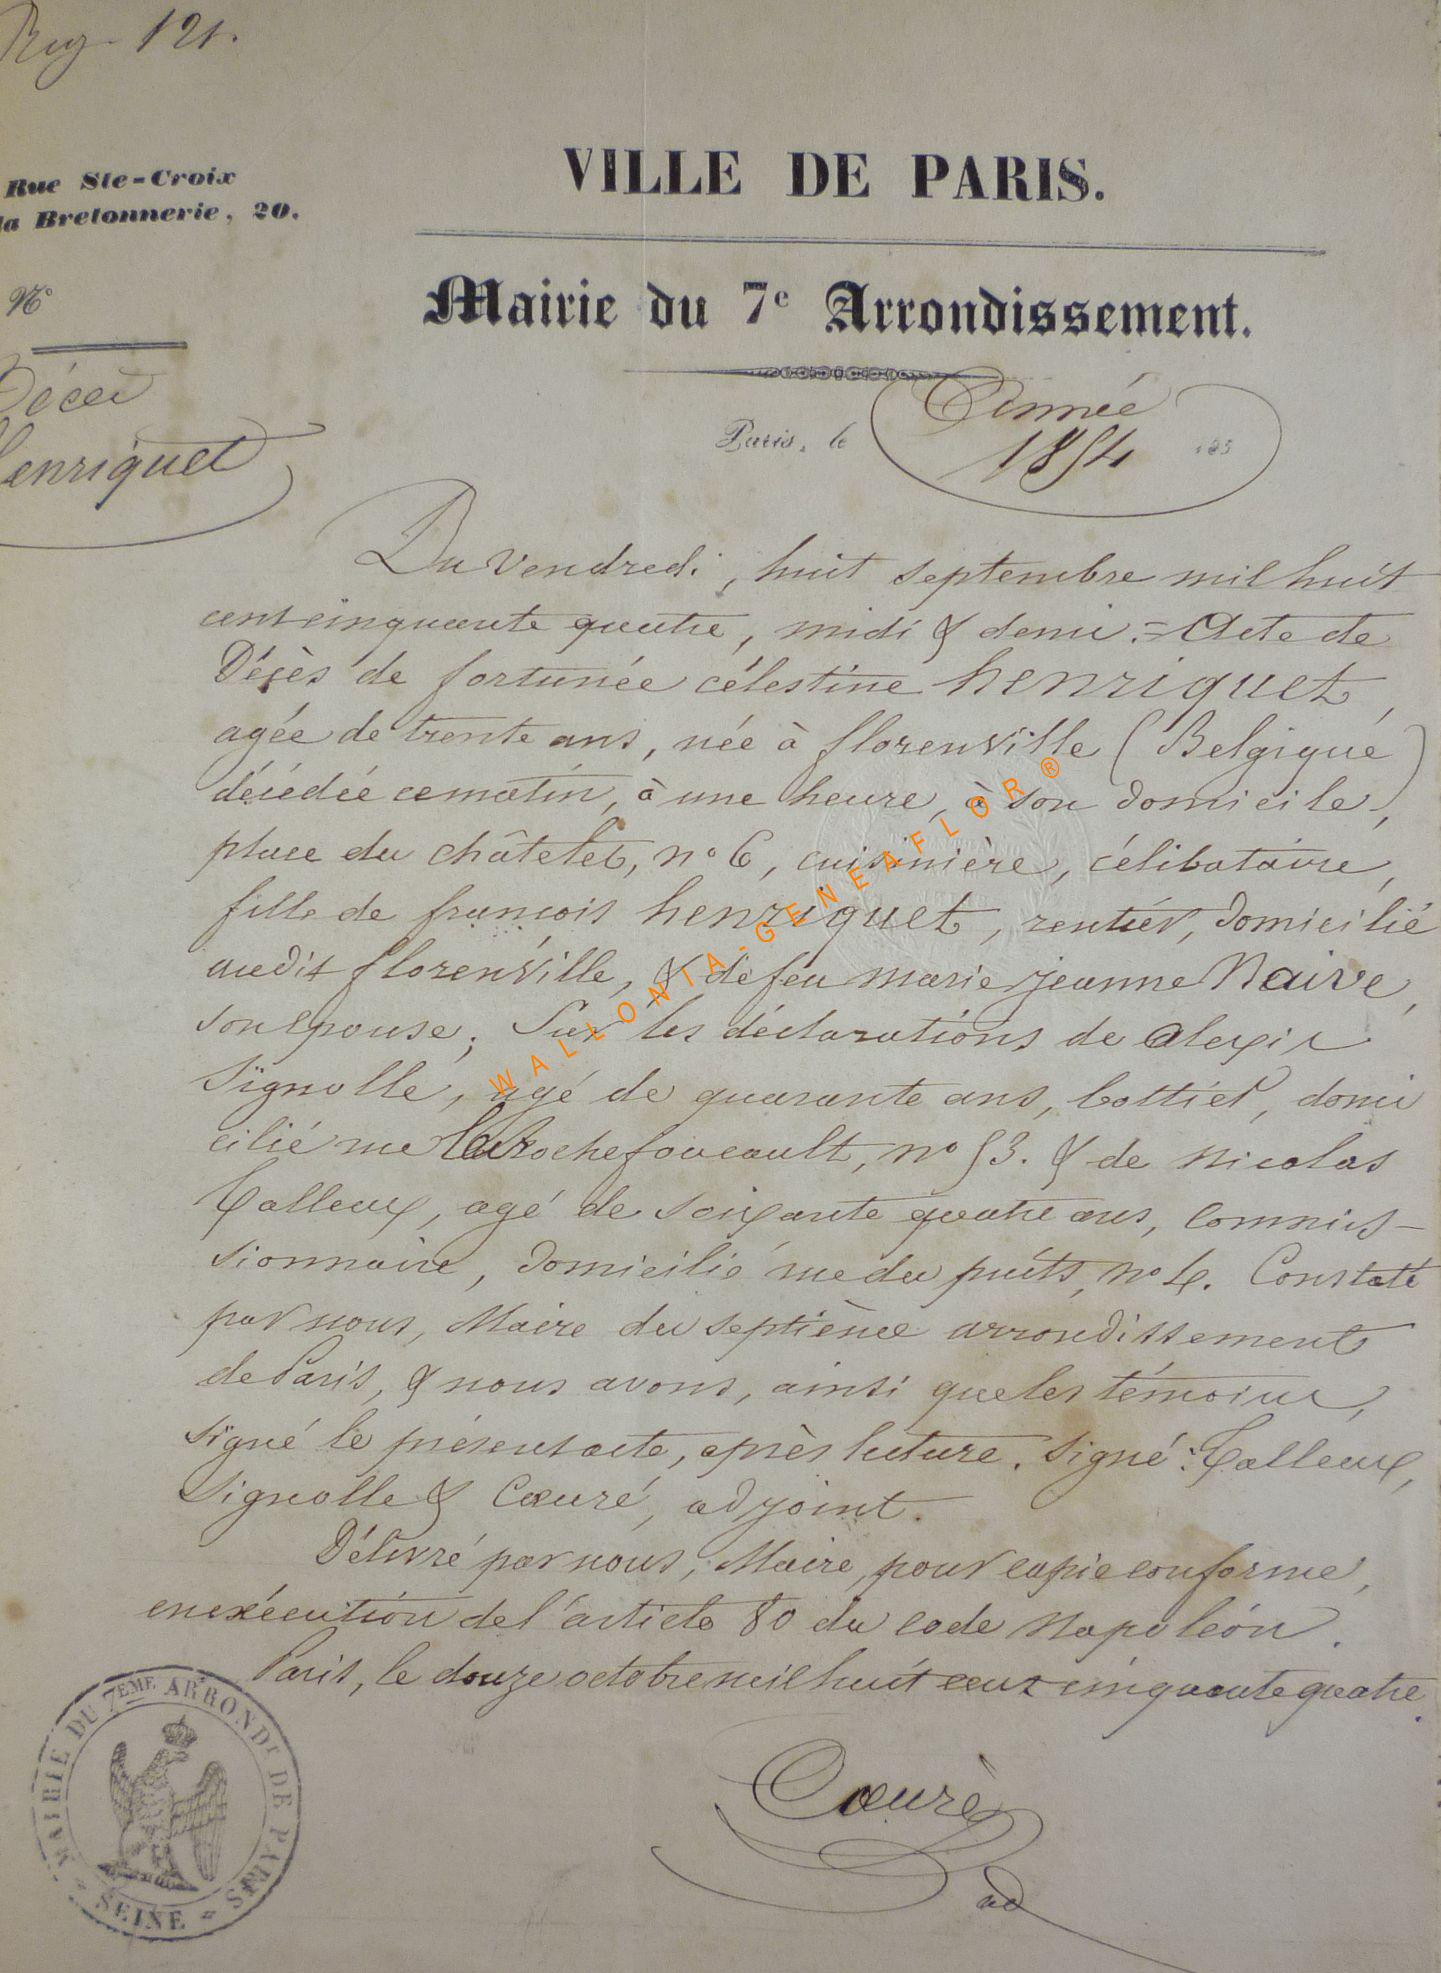 Reg. 121.
Rue Ste-Croix
la Bretonnerie, 20.
VILLE DE PARIS.
Mairie du 7e Arrondissement.
No
Décès
henriquet
Paris, le Année 185
1854
Du Vendredi, huit septembre mil huit
cent cinquante quatre, midi & demi. = Acte de
Décès de fortunée célestine henriquet,
agée de trente ans, née à florenville (Belgique)
décédée ce matin, à une heure, à son domicile,
place du châtelet, no 6, cuisinière, célibataire,
fille de francois henriquet, rentier, domicilié
audit florenville, & de feu marie jeanne Naive,
son epouse; Sur les déclarations de alexis
Signolle, agé de quarante ans, bottier, domi
cilié rue Larochefoucault, no 53. & de nicolas
Talleux, agé de soixante quatre ans, commis-
sionnaire, domicilié rue du puits, no 4. Constaté
par nous, Maire du septième arrondissement
de Paris, & nous avons, ainsi que les témoins,
signé le présent acte, après lecture. signé: Talleux,
Signolle & Cœuré, adjoint.
Délivré par nous, Maire, pour copie conforme,
en exécution de l'article 80 du code Napoléon.
Paris, le douze octobre mil huit cent cinquante quatre.
Cœuré
ad
MAIRIE DU 7EME ARRONDT DE PARIS
SEINE
WALLONIA-GENEAFLOR ®